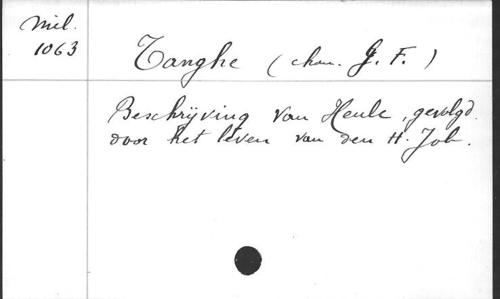 Mil.
1063
Tanghe (chan. G. F.)
Beschrijving van Heule, gevolgd
door het leven van den H. Job.